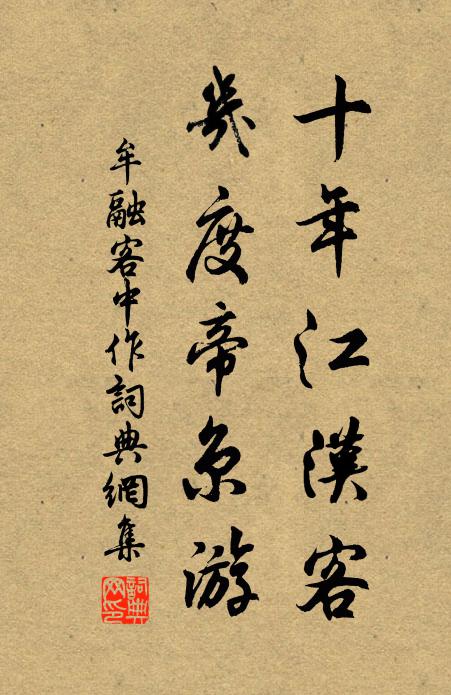 十年江漢客
幾度帝京游
牟融客中作詞典網集
詞典网印